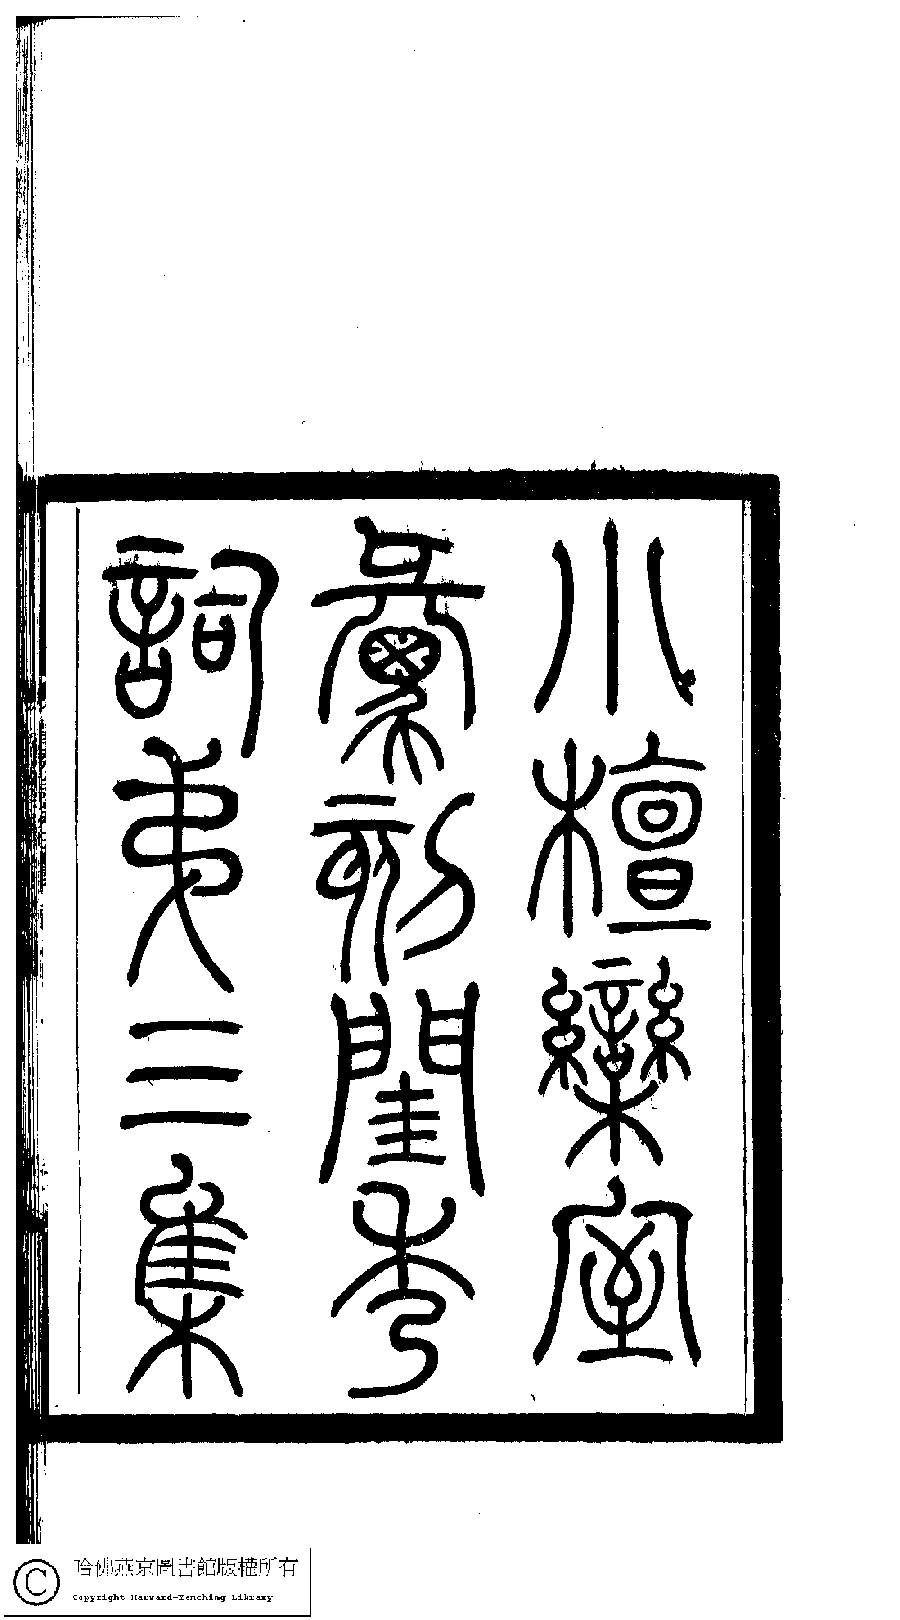 小檀欒室
彙刻閨秀
詞弟三集
哈佛燕京圖書館版權所有
Copyright Harvard-Yenching Library